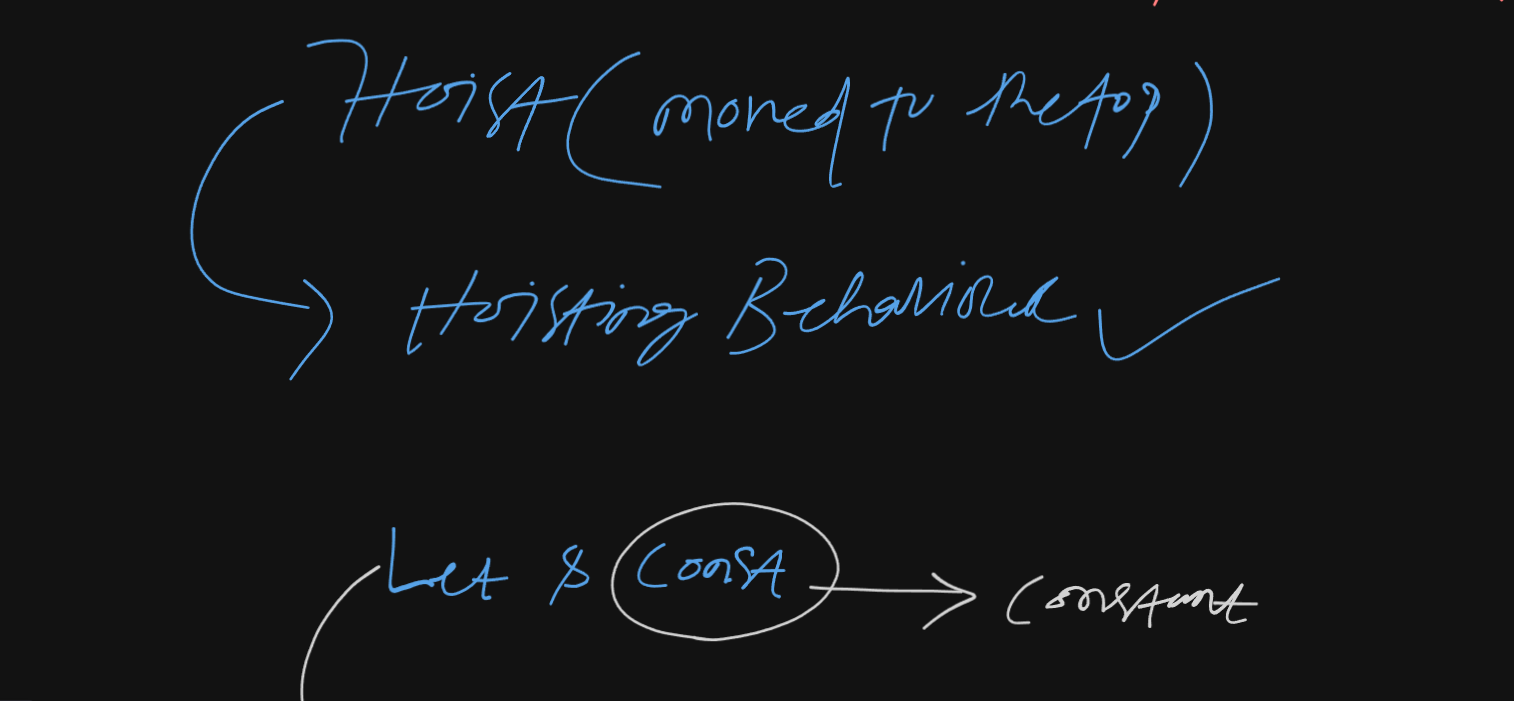 Hoist (moved to the top)
Hoisting Behaviour
Let & Const → Constant